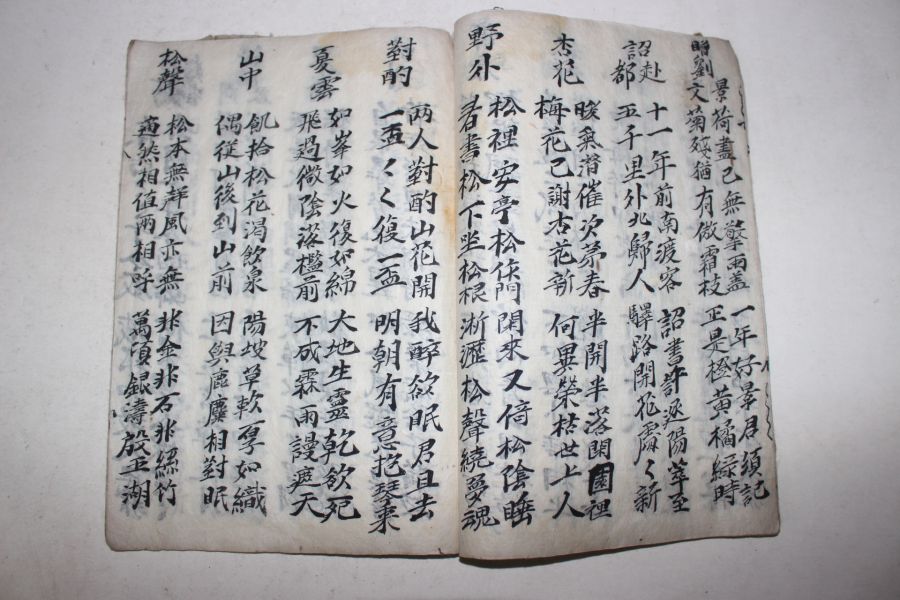 贈劉
景文
荷盡已無擎雨盖 一年好景君須記
菊殘猶有傲霜枝 正是橙黃橘綠時
赴
詔都
十一年前南渡客 詔書許逐陽和至
五千里外北歸人 驛路開花處々新
杏花
暖氣潛催次苐春 半開半落閑園裡
梅花已謝杏花新 何異榮枯世上人
野外
松裡安亭松作門 閑來又倚松陰睡
看書松下坐松根 淅瀝松聲繞夢魂
對酌
兩人對酌山花開 我醉欲眠君且去
一盃々々復一盃 明朝有意抱琴來
夏雲
如峯如火復如綿 大地生靈乾欲死
飛過微陰落檻前 不成霖雨謾遮天
山中
飢拾松花渴飲泉 陽坡草軟厚如織
偶從山後到山前 因與鹿麛相對眠
松聲
松本無聲風亦無 非金非石非絲竹
適然相值兩相呼 萬頃銀濤殷五湖